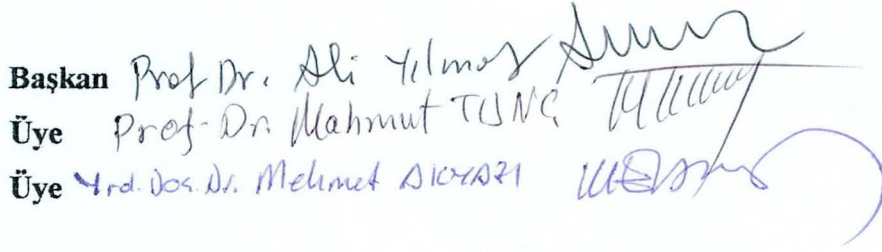 Başkan Prof Dr. Ali Yılmaz
Üye Prof. Dr. Mahmut TUNÇ
Üye Yrd. Doç. Dr. Mehmet AKYAZI